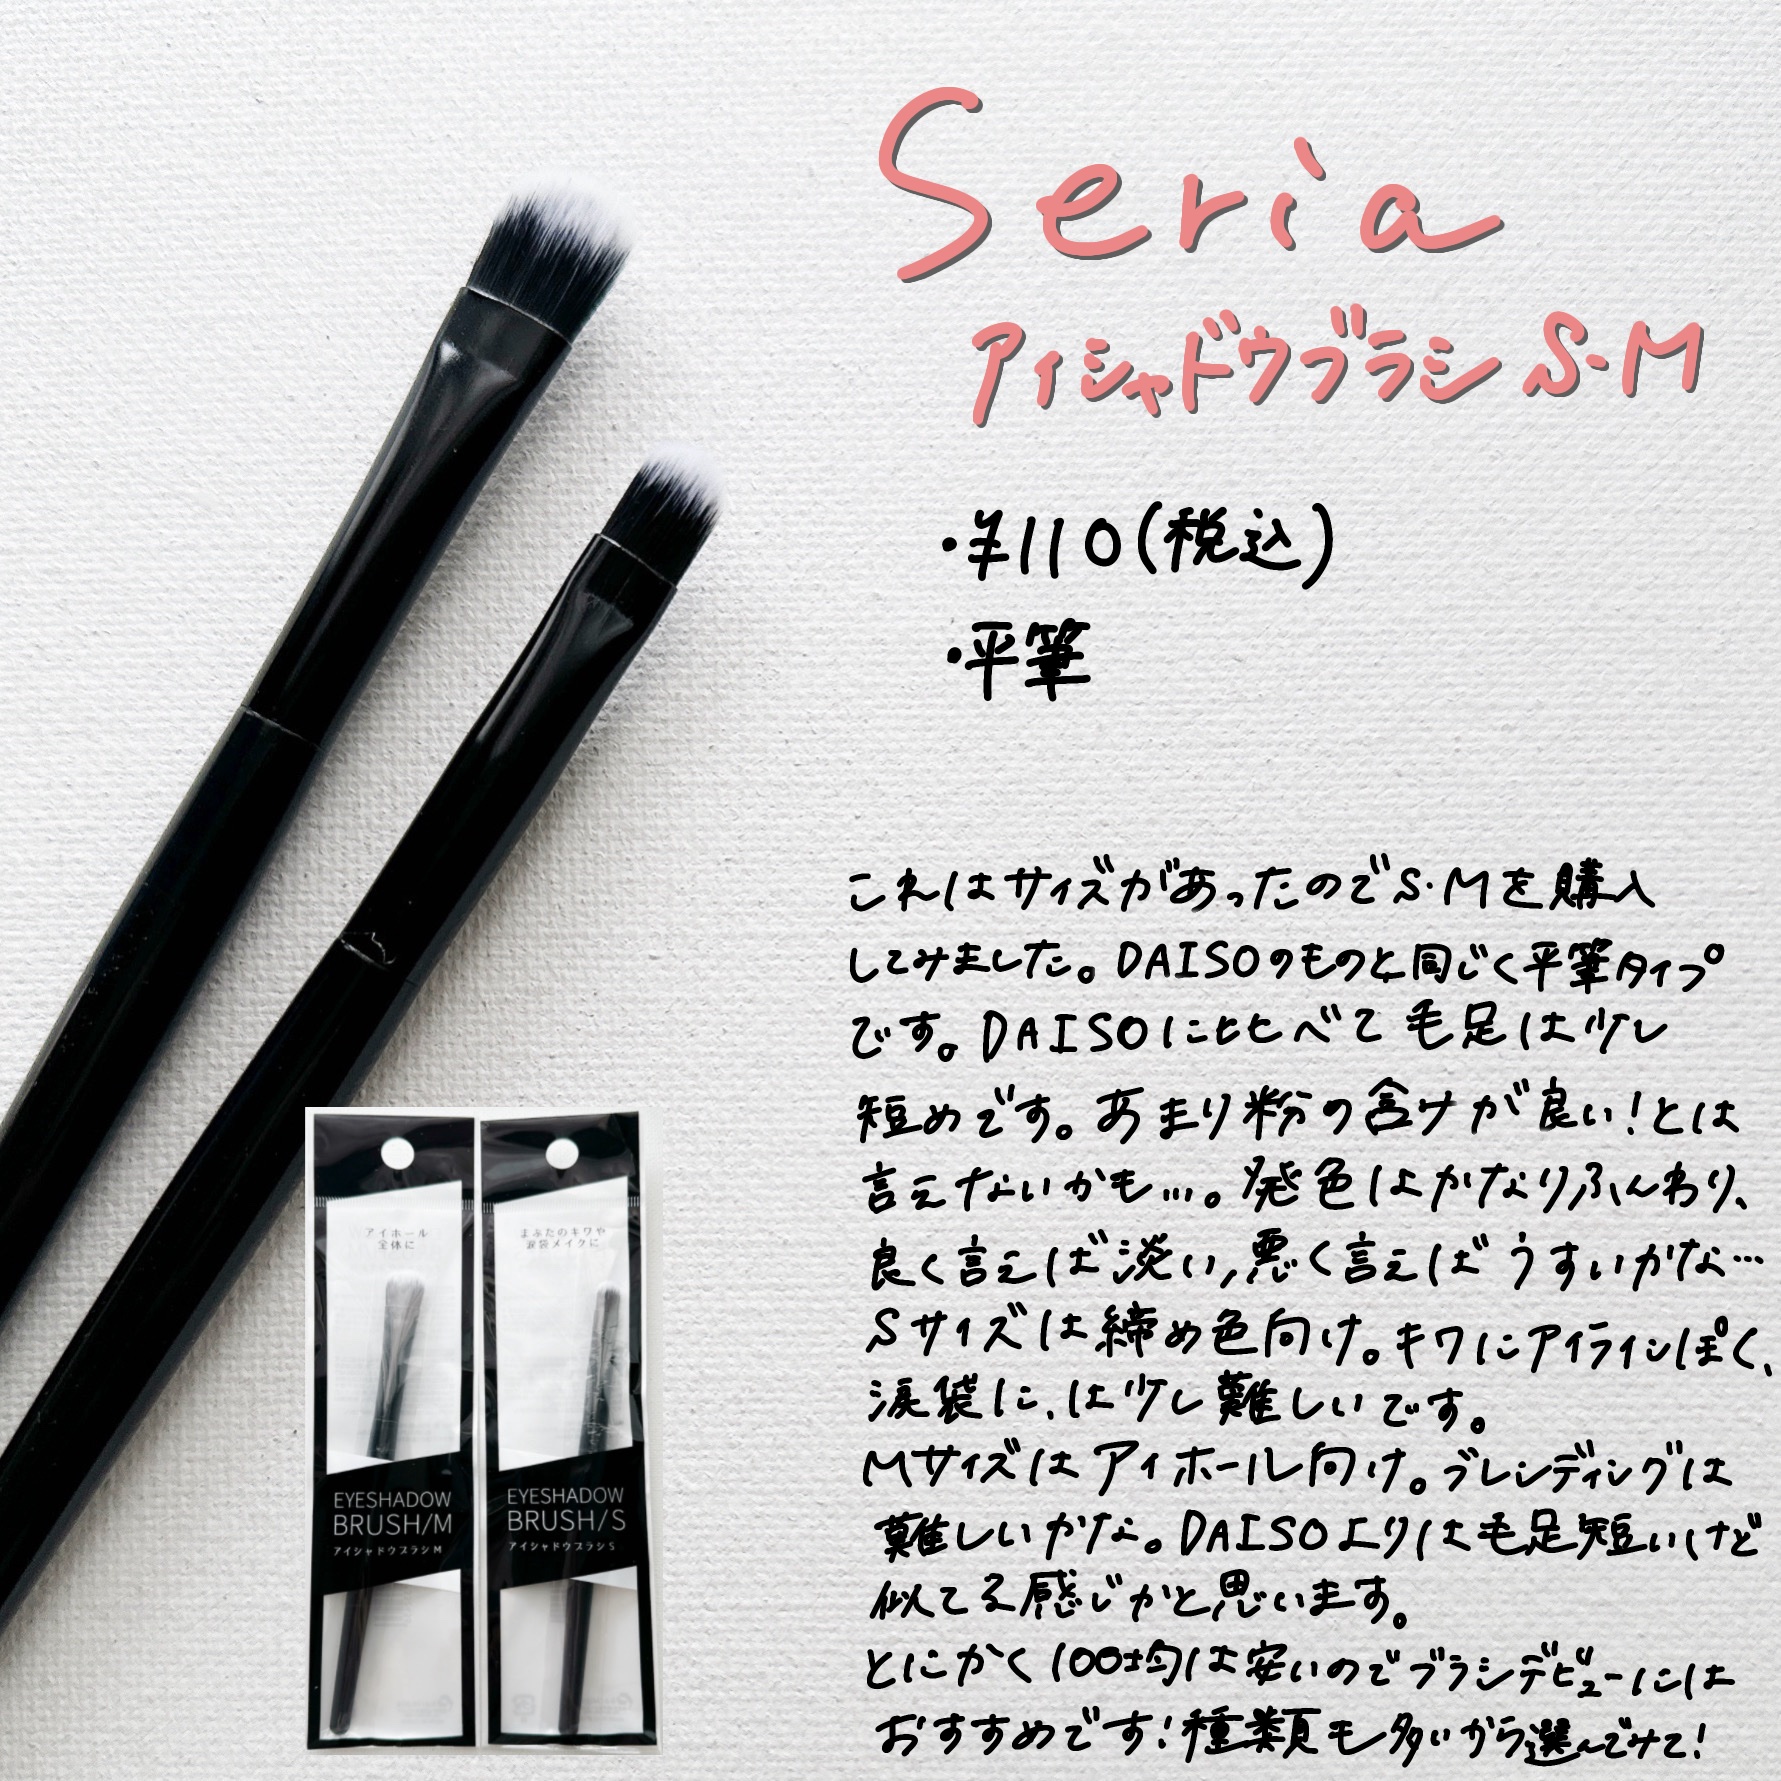 Seria
アイシャドウブラシ S・M
・¥110(税込)
・平筆
これはサイズがあったのでS・Mを購入
してみました。DAISOのものと同じく平筆タイプ
です。DAISOに比べて毛足は少し
短めです。あまり粉の含みが良い!とは
言えないかも…。発色はかなりふんわり、
良く言えば淡い,悪く言えばうすいかな…
Sサイズは締め色向け。キワにアイラインぽく、
涙袋に、は少し難しいです。
Mサイズはアイホール向け。ブレンディングは
難しいかな。DAISOよりは毛足短いけど
似てる感じかと思います。
とにかく100均は安いのでブラシデビューには
おすすめです!種類も多いから選んでみて!
アイホール
全体に
EYESHADOW
BRUSH/M
アイシャドウブラシ M
まぶたのキワや
涙袋メイクに
EYESHADOW
BRUSH/S
アイシャドウブラシ S